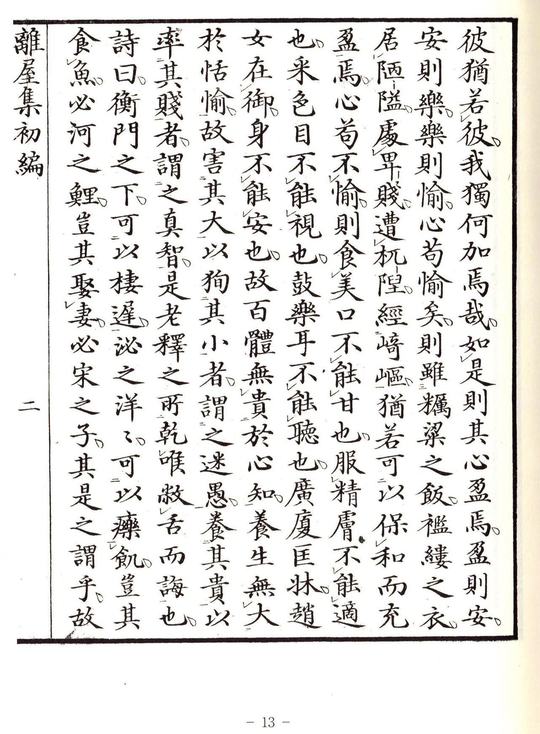 彼猶若彼我獨何加焉哉如是則其心盈焉盈則安
安則樂樂則愉心苟愉矣則雖糲粱之飯襤縷之衣
居陋隘處畀賤遭杌隉經崎嶇猶若可以保和而充
盈焉心苟不愉則食美口不能甘也服精膚不能適
也采色目不能視也鼓樂耳不能聽也廣廈匡牀趙
女在御身不能安也故百體無貴於心知養生無大
於恬愉故害其大以狥其小者謂之迷愚養其貴以
率其賤者謂之真智是老釋之所乾唯敝舌而誨也
詩曰衡門之下可以棲遲泌之洋〻可以癳飢豈其
食魚必河之鯉豈其娶妻必宋之子其是之謂乎故
離屋集初編
二
- 13 -